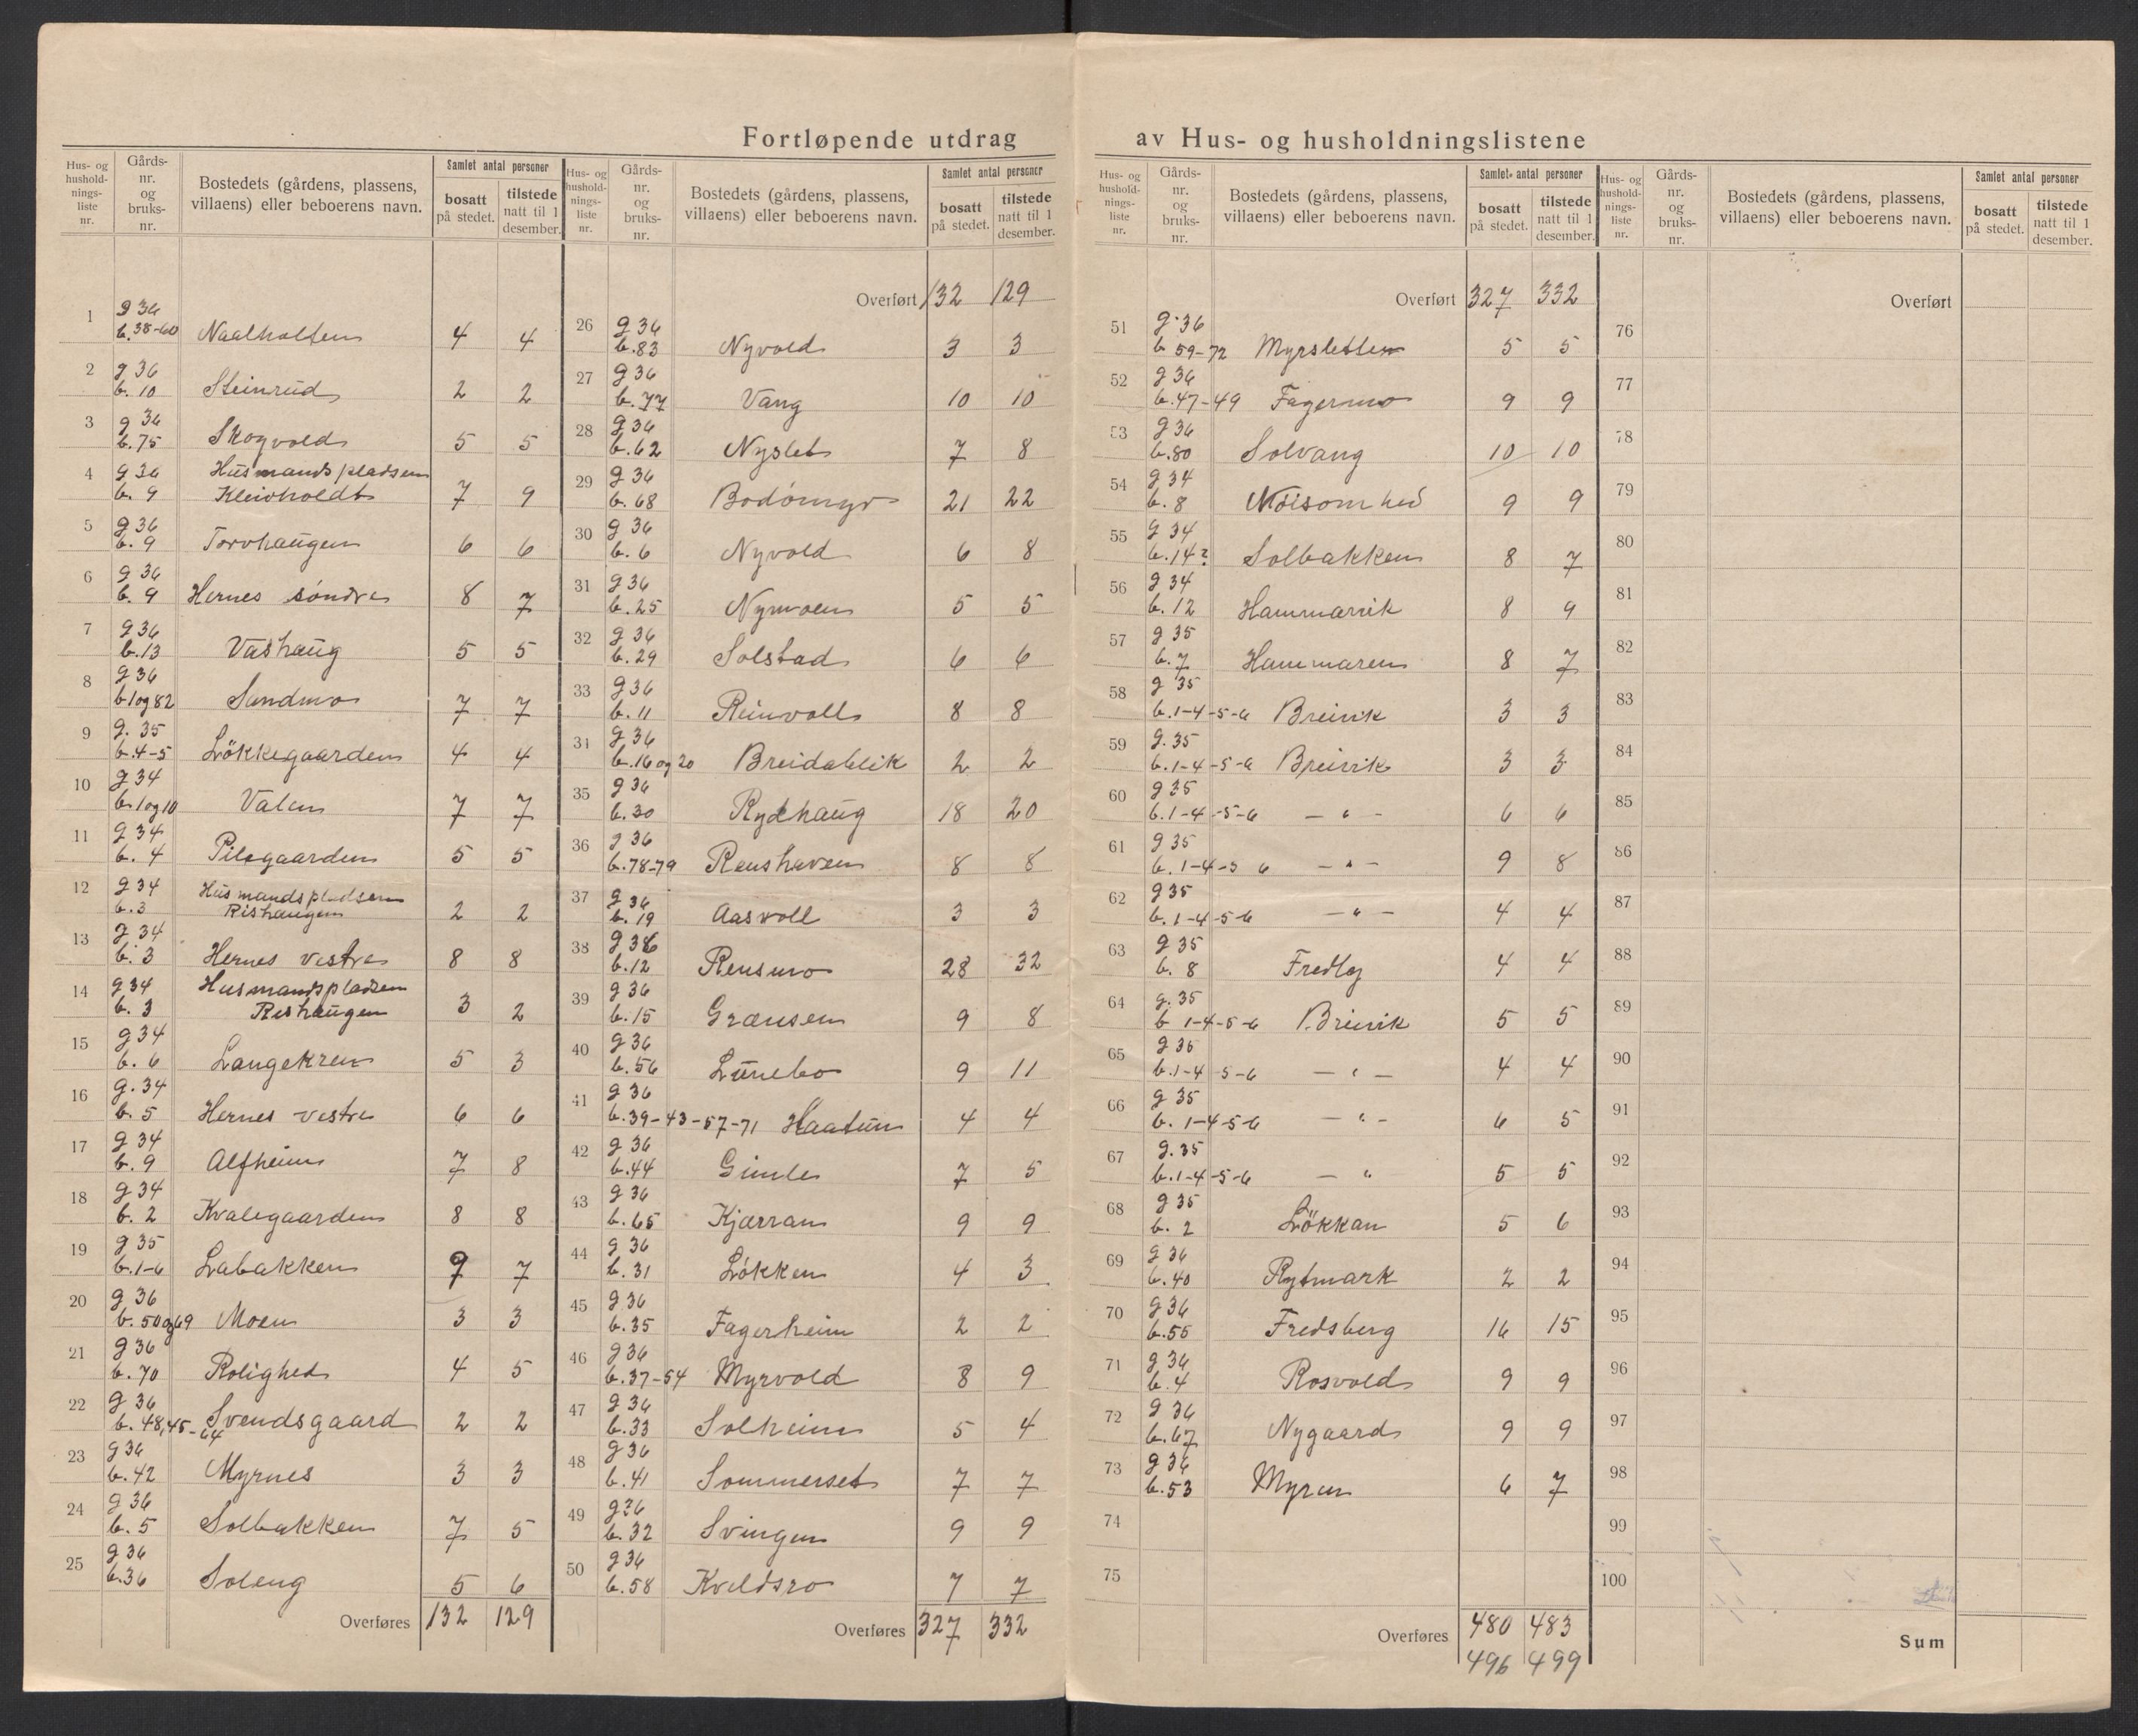 Fortløpende utdrag av Hus- og husholdningslistene
Hus- og husholdningsliste nr. | Gårds- nr. og bruks- nr. | Bostedets (gårdens, plassens, villaens) eller beboerens navn. | Samlet antal personer bosatt på stedet. | tilstede natt til 1 desember.
1 g 36 b. 38-60 Naalholten 4 4
2 g 36 b. 10 Steinrud 2 2
3 g 36 b. 75 Skogvold 5 5
4 g 36 b. 9 Husmandspladsen Kleivholdt 7 9
5 g 36 b. 9 Torvhaugen 6 6
6 g 36 b. 9 Hernes söndre 8 7
7 g 36 b. 13 Vashaug 5 5
8 g 36 b 1 og 82 Sandmo 7 7
9 g. 35 b. 4-5 Lökkegaarden 4 4
10 g 34 b. 1 og 10 Valen 7 7
11 g 34 b. 4 Pilegaarden 5 5
12 g 34 b. 3 Husmandspladsen Rishaugen 2 2
13 g 34 b. 3 Hernes vestre 8 8
14 g 34 b. 3 Husmandspladsen Rishaugen 3 2
15 g 34 b. 6 Langekren 5 3
16 g. 34 b. 5 Hernes vestre 6 6
17 g 34 b. 9 Alfheim 7 8
18 g 34 b. 2 Kvalegaarden 8 8
19 g 35 b. 1-6 Labakken 9 7
20 g 36 b. 50 og 69 Moen 3 3
21 g 36 b. 70 Rolighed 4 5
22 g 36 b. 48,45-64 Svendsgaard 2 2
23 g 36 b. 42 Myrnes 3 3
24 g 36 b. 5 Solbakken 7 5
25 g 36 b. 36 Soleng 5 6
Overføres 132 129
Hus- og husholdningsliste nr. | Gårds- nr. og bruks- nr. | Bostedets (gårdens, plassens, villaens) eller beboerens navn. | Samlet antal personer bosatt på stedet. | tilstede natt til 1 desember.
Overført 132 129
26 g 36 b. 83 Nyvold 3 3
27 g 36 b. 77 Vang 10 10
28 g 36 b. 62 Nyslet 7 8
29 g 36 b. 68 Bodömyr 21 22
30 g 36 b. 6 Nyvold 6 8
31 g 36 b. 25 Nymoen 5 5
32 g 36 b. 29 Solstad 6 6
33 g 36 b. 11 Reinvoll 8 8
34 g 36 b. 16 og 20 Breidablik 2 2
35 g 36 b. 30 Rydhaug 18 20
36 g 36 b. 78-79 Renshaven 8 8
37 g 36 b. 19 Aasvoll 3 3
38 g 36 b. 12 Rensmo 28 32
39 g 36 b. 15 Grænsen 9 8
40 g 36 b. 56 Lunebo 9 11
41 g 36 b. 39-43-57-71 Haatun 4 4
42 g 36 b. 44 Gimle 7 5
43 g 36 b. 65 Kjærran 9 9
44 g 36 b. 31 Lökken 4 3
45 g 36 b. 35 Fagerheim 2 2
46 g 36 b. 37-54 Myrvold 8 9
47 g 36 b. 33 Solheim 5 4
48 g 36 b. 41 Sommerset 7 7
49 g 36 b. 32 Svingen 9 9
50 g 36 b. 58 Kveldsro 7 7
Overføres 327 332
Hus- og husholdningsliste nr. | Gårds- nr. og bruks- nr. | Bostedets (gårdens, plassens, villaens) eller beboerens navn. | Samlet antal personer bosatt på stedet. | tilstede natt til 1 desember.
Overført 327 332
51 g. 36 b 59-72 Myrsletten 5 5
52 g 36 b. 47-49 Fagermo 9 9
53 g 36 b. 80 Solvang 10 10
54 g 34 b. 8 Nöisomhed 9 9
55 g 34 b. 14? Solbakken 8 7
56 g 34 b. 12 Hammarvik 8 9
57 g 35 b. 7 Hammaren 8 7
58 g 35 b. 1-4-5-6 Breivik 3 3
59 g. 35 b. 1-4-5-6 Breivik 3 3
60 g 35 b. 1-4-5-6 — " — 6 6
61 g 35 b. 1-4-5 6 — " — 9 8
62 g 35 b. 1-4-5-6 — " — 4 4
63 g 35 b. 8 Fredly 4 4
64 g. 35 b 1-4-5-6 Breivik 5 5
65 g 35 b. 1-4-5-6 — " — 4 4
66 g 35 b. 1-4-5-6 — " — 6 5
67 g. 35 b. 1-4-5-6 — " 5 5
68 g 35 b. 2 Lökkan 5 6
69 g 36 b. 40 Rytmark 2 2
70 g 36 b. 55 Fredsberg 16 15
71 g 36 b. 4 Rosvold 9 9
72 g 36 b. 67 Nygaard 9 9
73 g 36 b. 53 Myran 6 7
74
75
Overføres 480 483
496 499
Hus- og husholdningsliste nr. | Gårds- nr. og bruks- nr. | Bostedets (gårdens, plassens, villaens) eller beboerens navn. | Samlet antal personer bosatt på stedet. | tilstede natt til 1 desember.
Overført
76
77
78
79
80
81
82
83
84
85
86
87
88
89
90
91
92
93
94
95
96
97
98
99
100
Sum